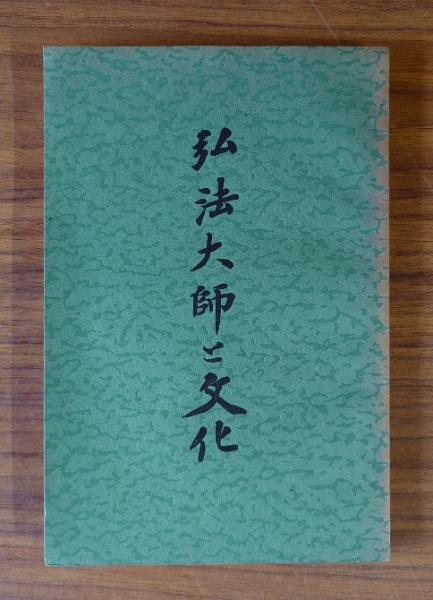 弘法大師と文化